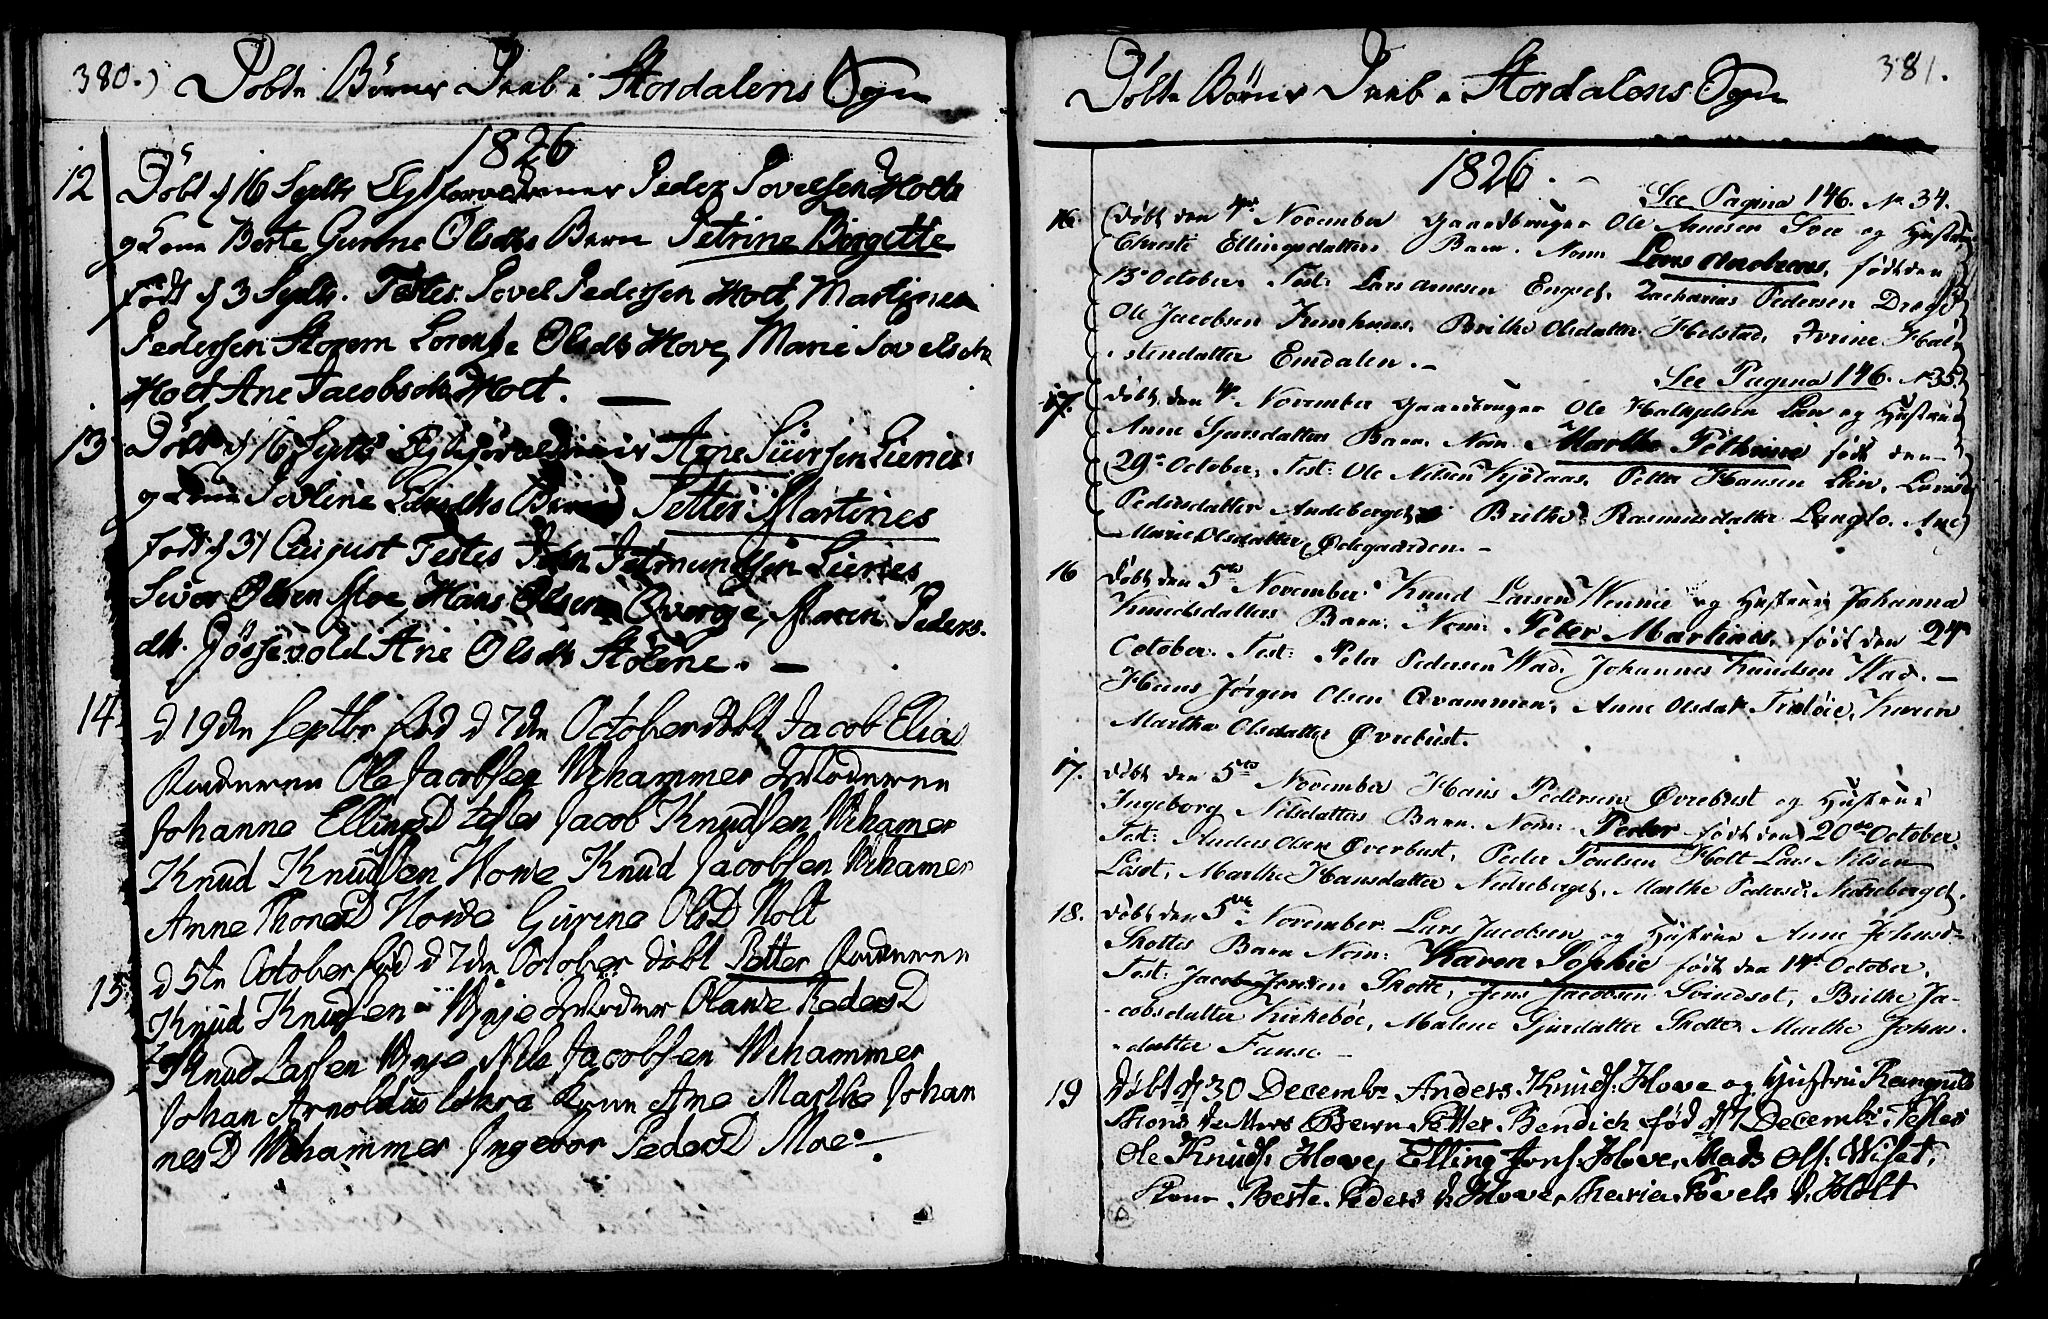 380.)
Døbte Børns Daab i Stordalens Sogn
1826
12 Døbt d 16 Septbr Peder Povelsen Holt
og Kone Berte Gurine Olsdtr Barn Petrine Birgitte
født d 3 Septbr. Testes. Povel Pedersen Holt, Martines
Pedersen Storem Olsdtr Hove, Marie Povelsdtr
Holt Ane Jacobsdtr Holt. —
13 Døbt d 16 Septbr Arne Siversen Lienes
og Kone Povline Barn Petter Martines
født d 31 August Testes John Lienes
Siver Olsen Moe, Hans Olsen Øverøye, Maren Peders-
dtr. Jøssevold Ane Olsdtr Støline. —
14 d 19den Septbr fød d 7de October døbt Jacob Elias
Faderen Ole Jacobsen Wehammer Moderen
Johanne EllingsD testes Jacob Knudsen Wehamer
Knud Knudsen Howe Knud Jacobsen Wehamer
Anne ThoresD Howe Gurine OlsD Holt
15 d 5te October fød d 7de October døbt Petter Faderen
Knud Knudsen Winje Moder Olawe PedersD
test Knud Larsen Winje Nils Jacobsen Wehammer
Johan Arnoldus Løkra Ane Marthe Johan
nesD Wehammer Ingebor PedersD Moe.
381.
Døbte Børns Daab i Stordalens Sogn
1826. –
See Pagina 146. No 34.
16. Døbt den 4de November Gaardbruger Ole Arnesen Svee og Hustrue
Chirsti Ellingsdatters Barn. Nom Lars Andreas, født den
15 October. Test: Lars Arnesen Engset, Zacharias Pedersen Drage
Ole Jacobsen Kumhuus, Brithe Olsdatter Helstad, Iverine Hal-
stendatter Emdalen. –
See Pagina 146. No 35.
17. Døbt den 4de November Gaardbruger Ole Halkjelsen Lien og Hustrue
Anne Sjursdatters Barn. Nom. Marthe Pethrine født den
29de October, Test: Ole Nilsen Kjølaas, Petter Hansen Lien,
Pedersdatter Andeberget, Brithe Rasmusdatter Langlo. Ane
Marie Olsdatter Ødegaarden. –
16 Døbt den 5te November Knud Larsen Winnie og Hustrue Johanna
Knudsdatters Barn. Nom: Peter Martinus, født den 24de
October. Test: Peter Pedersen Wad, Johannes Knudsen Wad. –
Hans Jørgen Olsen Qvammen, Anne Olsdatr Karen
Marthe Olsdatter Øvrebust.
17. Døbt den 5te November Hans Pedersen Øvrebust og Hustrue
Ingeborg Nilsdatters Barn. Nom: Peder født den 20de October.
Test: Anders Olsen Øverbust, Peder Poulsen Holt Lars Nilsen
Løset, Marthe Hansdatter Nedreberget, Marthe Pedersd: Nedreberget.
18. Døbt den 5te November Lars Jacobsen og Hustrue Anne Johnsd-
Skottes Barn Nom: Karen Sophie født den 14de October.
Test: Jacob Jensen Skotte, Jens Jacobsen Svindset, Brithe Ja-
cobsdatter Kirkebøe, Malene Sjursdatter Skotte Marthe Johns-
datter Fause –
19 Døbt d 30 Decembr Anders Knuds: Hove og Hustru Rangnild
Thors datters Barn Petter Bendich fød d 7 Decembr: Testes
Ole Knuds: Hove, Elling Jons: Hove, Mads Ols: Wiset,
Berte Peders d. Hove, Maria Povels d. Holt